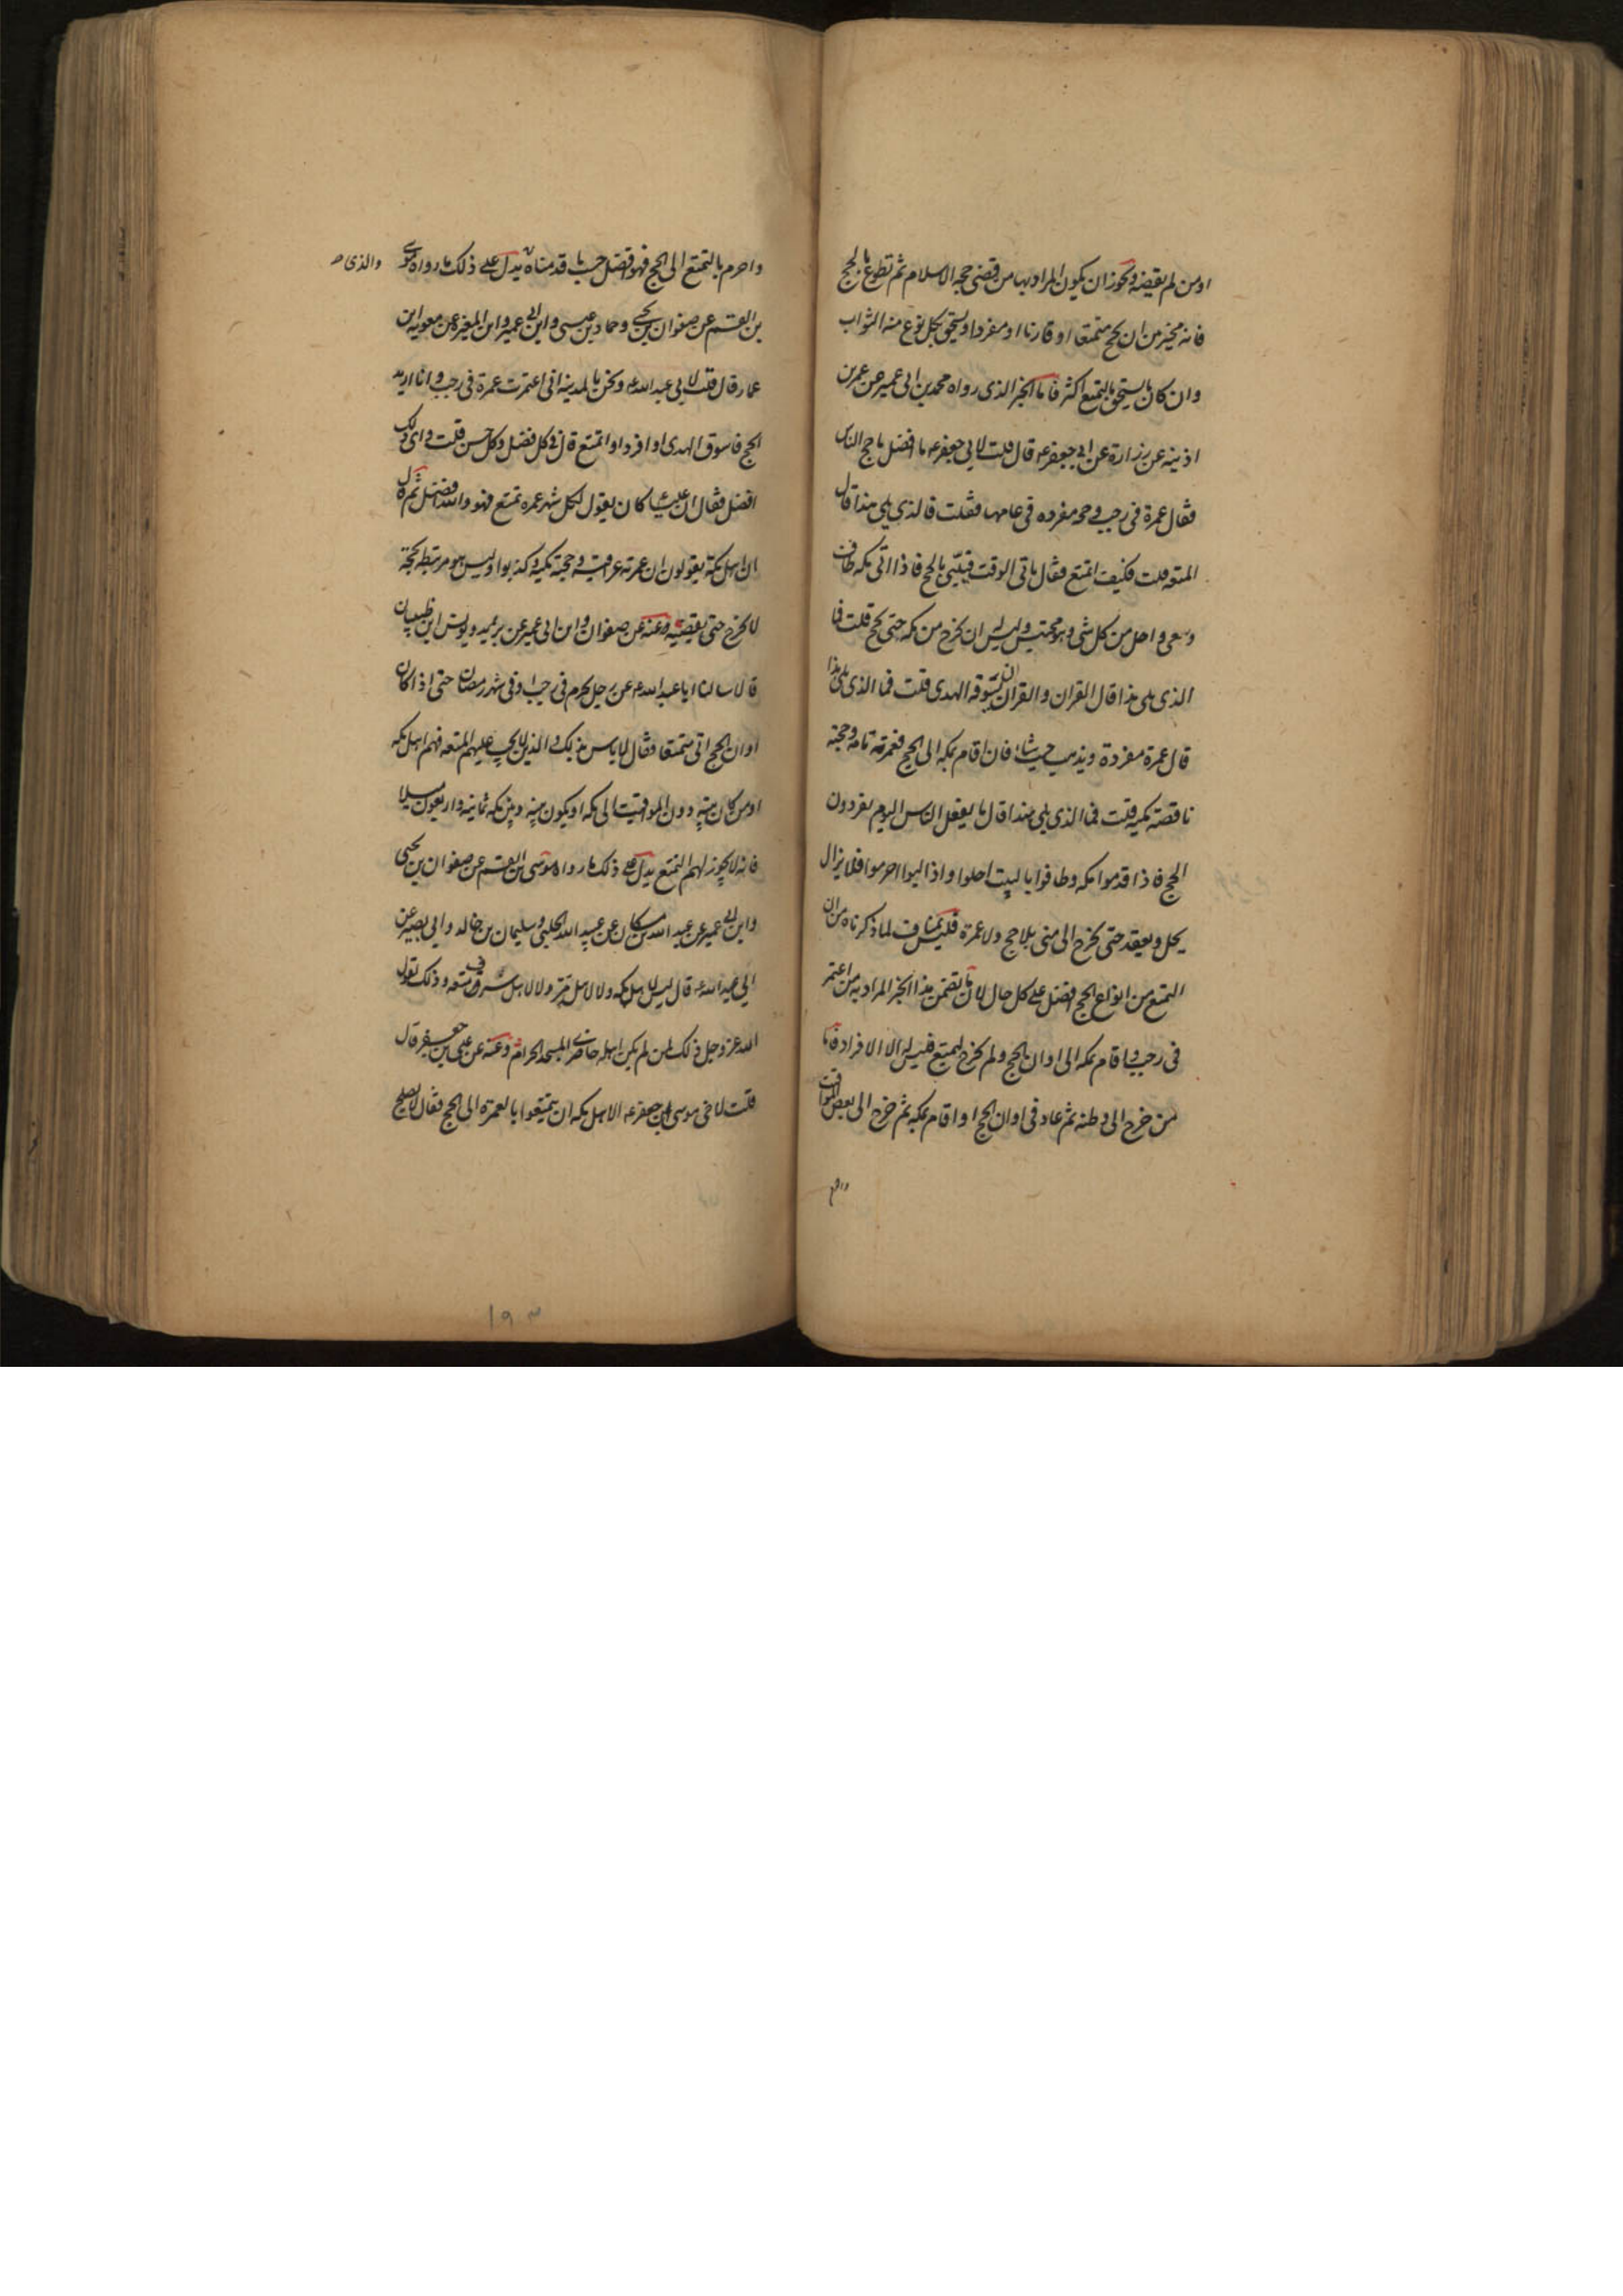 او من لم يقضه ويجوز ان يكون المراد بها من قضى حجة الاسلام ثم تطوع بالحج
فانه مخير من ان يحج متمتعا او قارنا او مفردا ويستحق بكل نوع منه الثواب
وان كان ما يستحق بالتمتع اكثر فاما الخبر الذى رواه محمد بن ابى عمير عن عمر بن
اذينه عن زرارة عن ابى جعفر عه قال قلت لابى جعفر عه ما افضل ما حج الناس
فقال عمرة فى رجب وحجه مفرده فى عامها فقلت فالذى يلى هذا قال
المتعه قلت فكيف اتمتع فقال ياتى الوقت فيلبى بالحج فاذا اتى مكه طاف
وسعى واحل من كل شى وهو محتبس وليس له ان يخرج من مكه حتى يحج قلت فما
الذى يلى هذا قال القران والقران ان يسوق الهدى قلت فما الذى يلى هذا
قال عمرة مفردة ويذهب حيث شاء فان اقام بمكه الى الحج فعمرته تامه وحجته
ناقصة مكيه قلت فما الذى يلى هذا قال ما يفعل الناس اليوم يفردون
الحج فاذا قدموا مكه وطافوا بالبيت احلوا واذا لبوا احرموا فلا يزال
يحل ويعقد حتى يخرج الى منى بلا حج ولا عمرة فليس بمناف لما ذكرناه من ان
التمتع من انواع الحج افضل على كل حال لان ما تضمن هذا الخبر المراد به من اعتمر
فى رجب واقام بمكه الى اوان الحج ولم يخرج ليتمتع فليس له الا الافراد فاما
من خرج الى وطنه ثم عاد فى اوان الحج او اقام بمكه ثم خرج الى بعض المواقيت
واحرم
واحرم بالتمتع الى الحج فهو افضل حسب ما قدمناه يدل على ذلك ما رواه موسى
والذى
بن القسم عن صفوان بن يحيى وحماد بن عيسى وابن ابى عمير وابن المغيره عن معويه ابن
عمار قال قلت لابى عبد الله عه ونحن بالمدينه انى اعتمرت عمرة فى رجب وانا اريد
الحج فاسوق الهدى او افرد او اتمتع قال فى كل فضل وكل حسن قلت واى ذلك
افضل فقال ان عليا ع كان يقول لكل شهر عمره تمتع فهو والله افضل ثم قال
ان اهل مكة يقولون ان عمرته عراقيه وحجته مكيه وكذبوا اوليس هو مرتبط بحجه
لا يخرج حتى يقضيه وعنه عن صفوان وابن ابى عمير عن بريد ويونس ابن ظبيان
قالا سالنا ابا عبد الله عه عن رجل يحرم فى رجب او فى شهر رمضان حتى اذا كان
اوان الحج اتى متمتعا فقال لا باس بذلك والذين لا يجب عليهم المتعه فهم اهل مكه
او من كان بيته دون المواقيت الى مكه او يكون بينه وبين مكه ثمانيه واربعون ميلا
فانه لا يجوز لهم التمتع يدل على ذلك ما رواه موسى ابن القسم عن صفوان بن يحيى
وابن ابى عمير عن عبد الله بن مسكان عن عبيد الله الحلبى وسليمان بن خالد وابى بصير عن
ابى عبد الله عه قال ليس لاهل مكه ولا لاهل مر ولا لاهل سرف متعه وذلك لقول
الله عز وجل ذلك لمن لم يكن اهله حاضرى المسجد الحرام وعنه عن على بن جعفر قال
قلت لاخى موسى بن جعفر عه الاهل مكه ان يتمتعوا بالعمرة الى الحج فقال لا يصلح
١٩٣